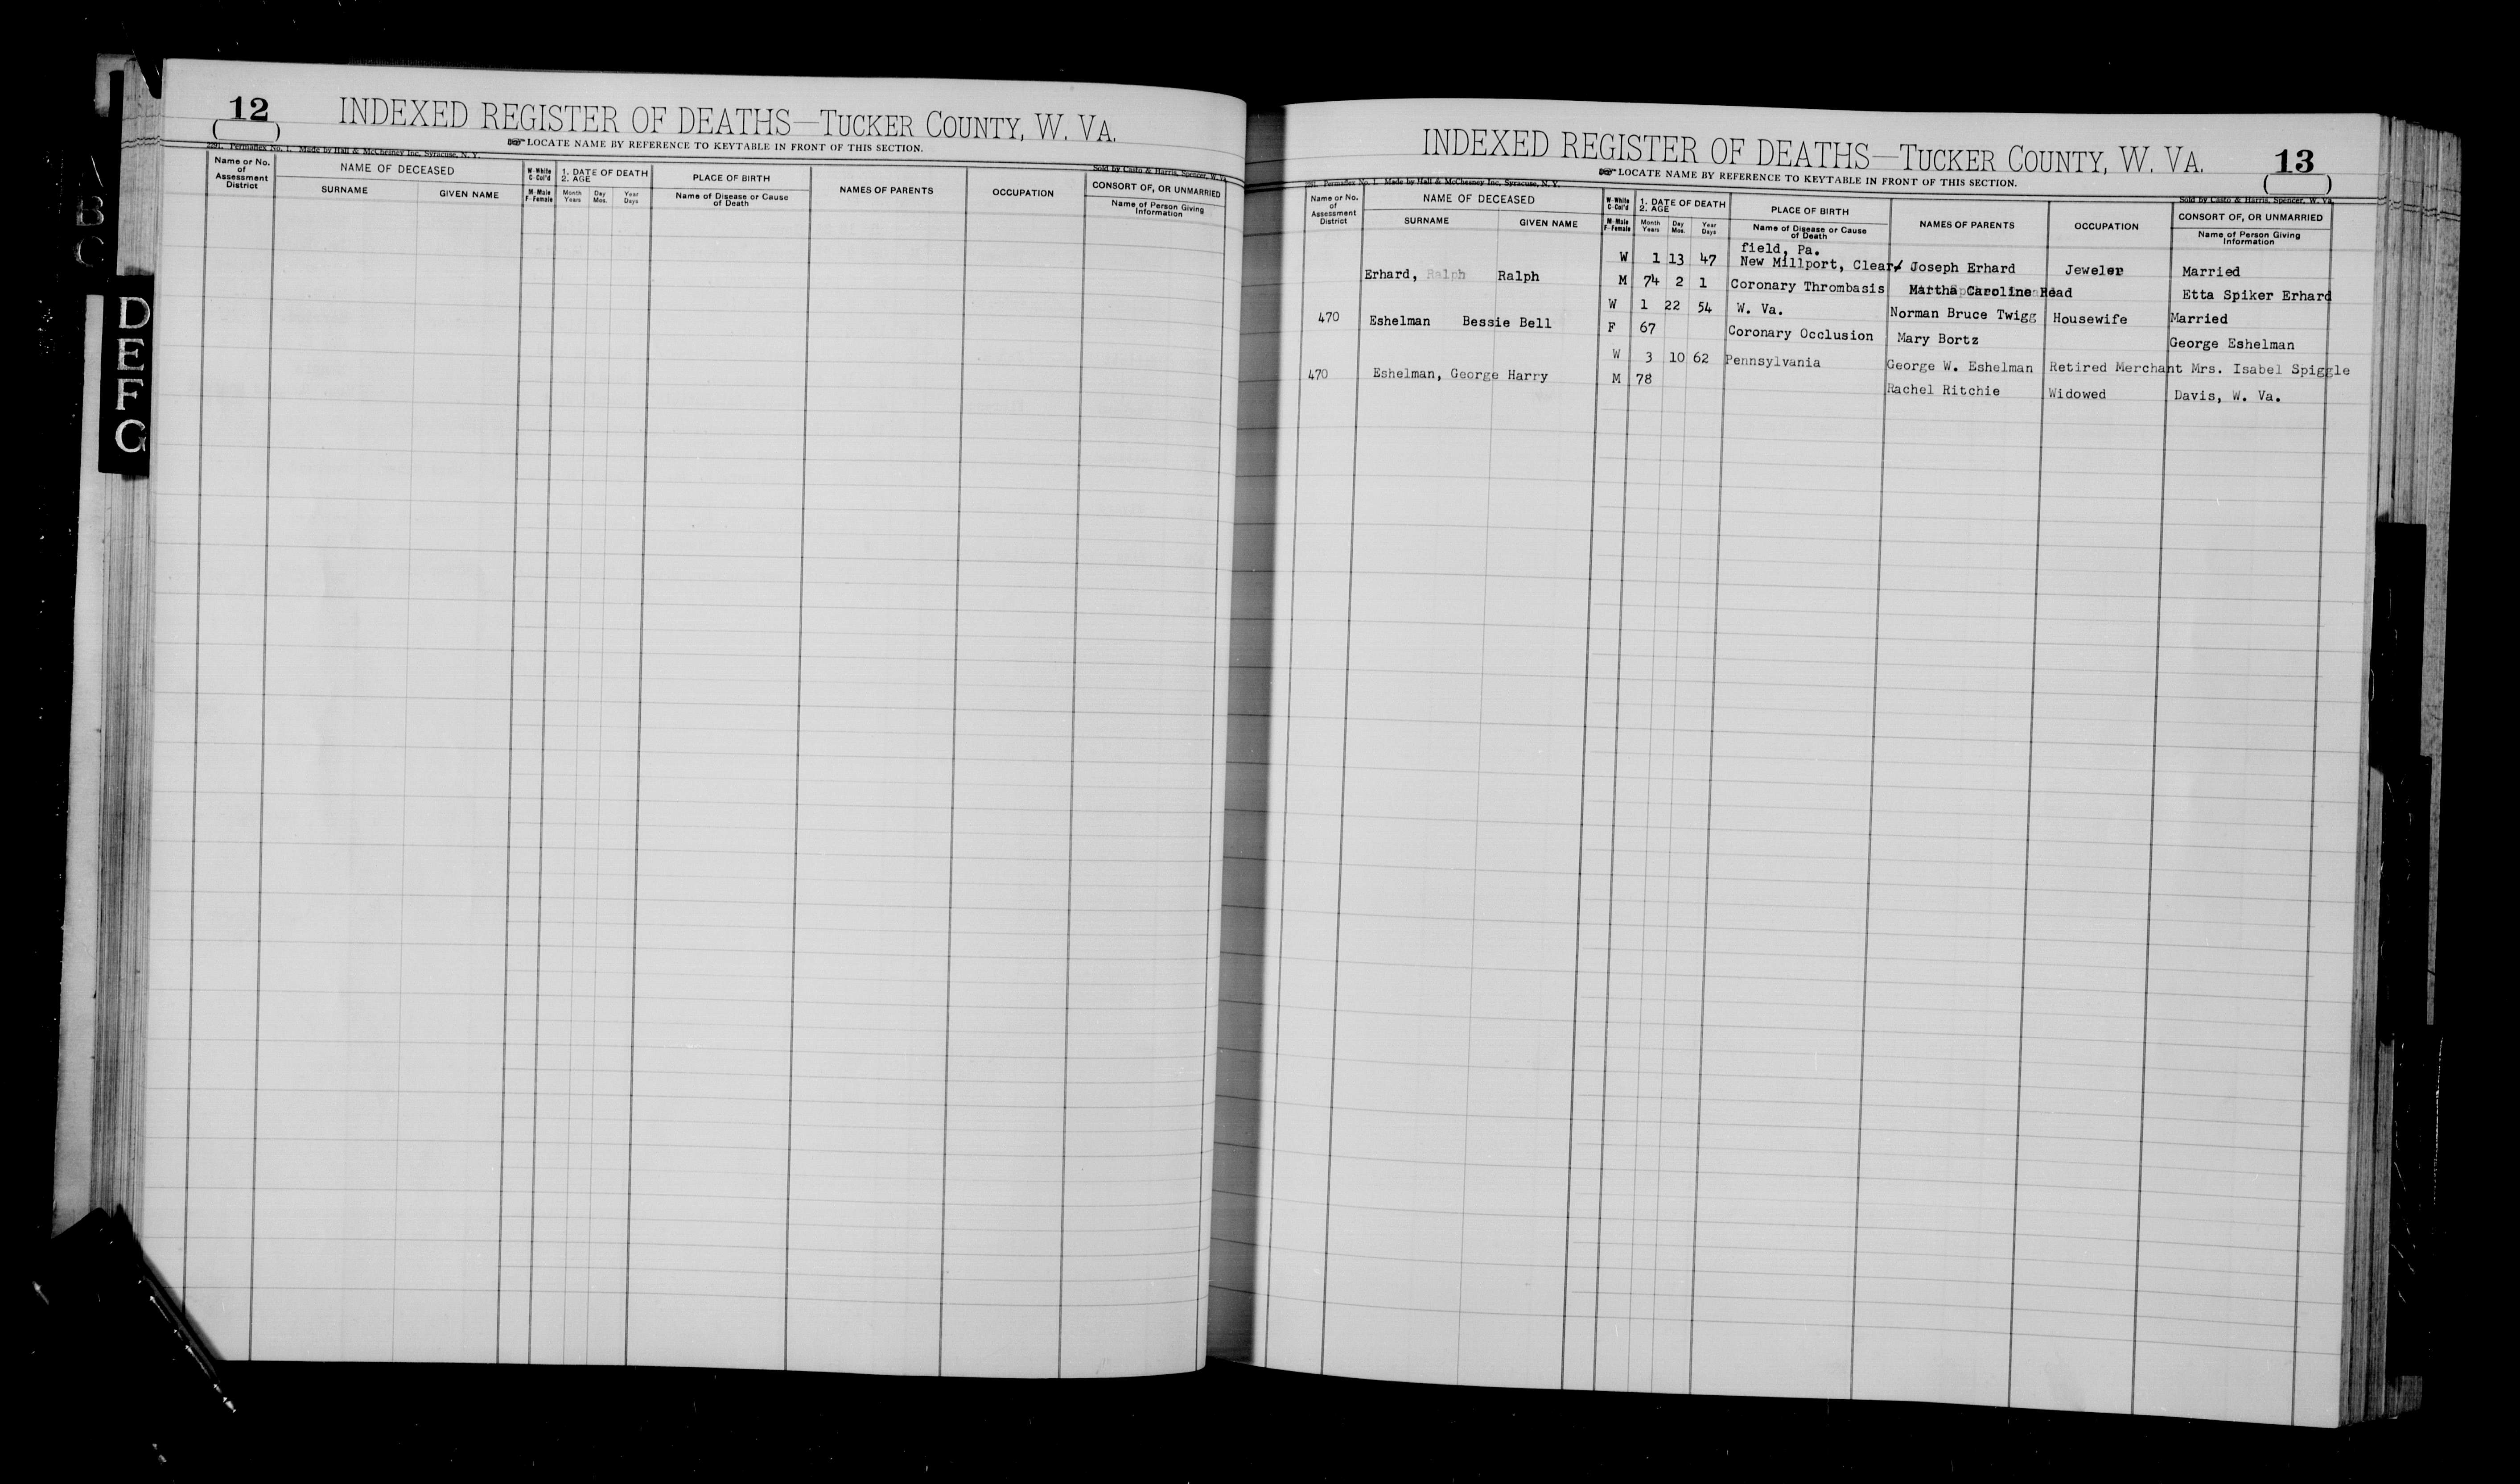 12
INDEXED REGISTER OF DEATHS—TUCKER COUNTY, W. VA.
LOCATE NAME BY REFERENCE TO KEYTABLE IN FRONT OF THIS SECTION.
2291. Permaflex No. 1. Made by Hall & McChesney Inc. Syracuse, N. Y.
Sold by Casto & Harris, Spencer, W. Va.
Name or No. of Assessment District
NAME OF DECEASED
SURNAME
GIVEN NAME
W-White C-Col'd
M-Male F-Female
1. DATE OF DEATH
2. AGE
Month Years
Day Mos.
Year Days
PLACE OF BIRTH
Name of Disease or Cause of Death
NAMES OF PARENTS
OCCUPATION
CONSORT OF, OR UNMARRIED
Name of Person Giving Information
B
C
D
E
F
G
INDEXED REGISTER OF DEATHS—TUCKER COUNTY, W. VA.
13
LOCATE NAME BY REFERENCE TO KEYTABLE IN FRONT OF THIS SECTION.
2291. Permaflex No. 1. Made by Hall & McChesney Inc. Syracuse, N. Y.
Sold by Casto & Harris, Spencer, W. Va.
Name or No. of Assessment District
NAME OF DECEASED
SURNAME
GIVEN NAME
W-White C-Col'd
M-Male F-Female
1. DATE OF DEATH
2. AGE
Month Years
Day Mos.
Year Days
PLACE OF BIRTH
Name of Disease or Cause of Death
NAMES OF PARENTS
OCCUPATION
CONSORT OF, OR UNMARRIED
Name of Person Giving Information
field, Pa.
W 1 13 47 New Millport, Clear Joseph Erhard Jeweler Married
Erhard, Ralph Ralph M 74 2 1 Coronary Thrombasis Martha Caroline Read Etta Spiker Erhard
W 1 22 54 W. Va. Norman Bruce Twigg Housewife Married
470 Eshelman Bessie Bell F 67 Coronary Occlusion Mary Bortz George Eshelman
W 3 10 62 Pennsylvania George W. Eshelman Retired Merchant Mrs. Isabel Spiggle
470 Eshelman, George Harry M 78 Rachel Ritchie Widowed Davis, W. Va.